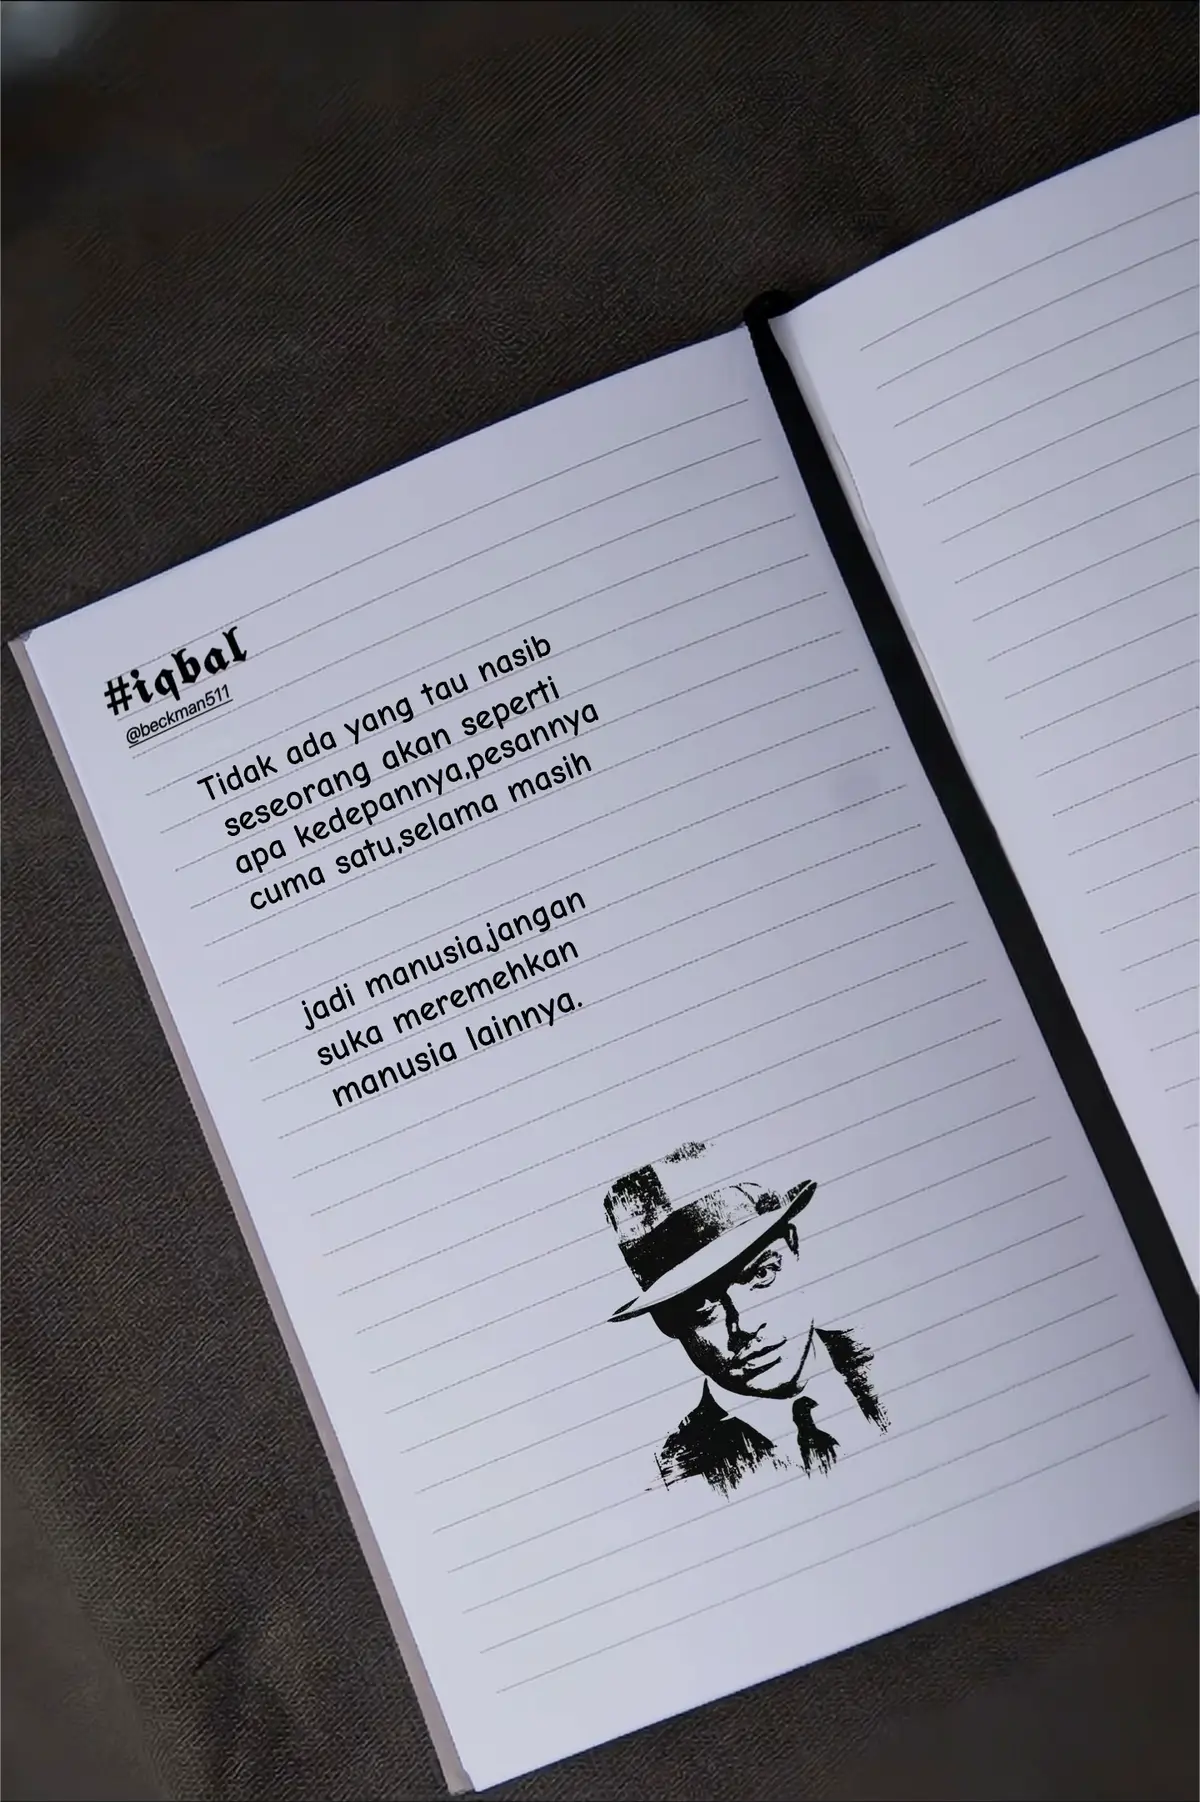 #iqbal
@beckman511
Tidak ada yang tau nasib
seseorang akan seperti
apa kedepannya,pesannya
cuma satu,selama masih
jadi manusia,jangan
suka meremehkan
manusia lainnya.